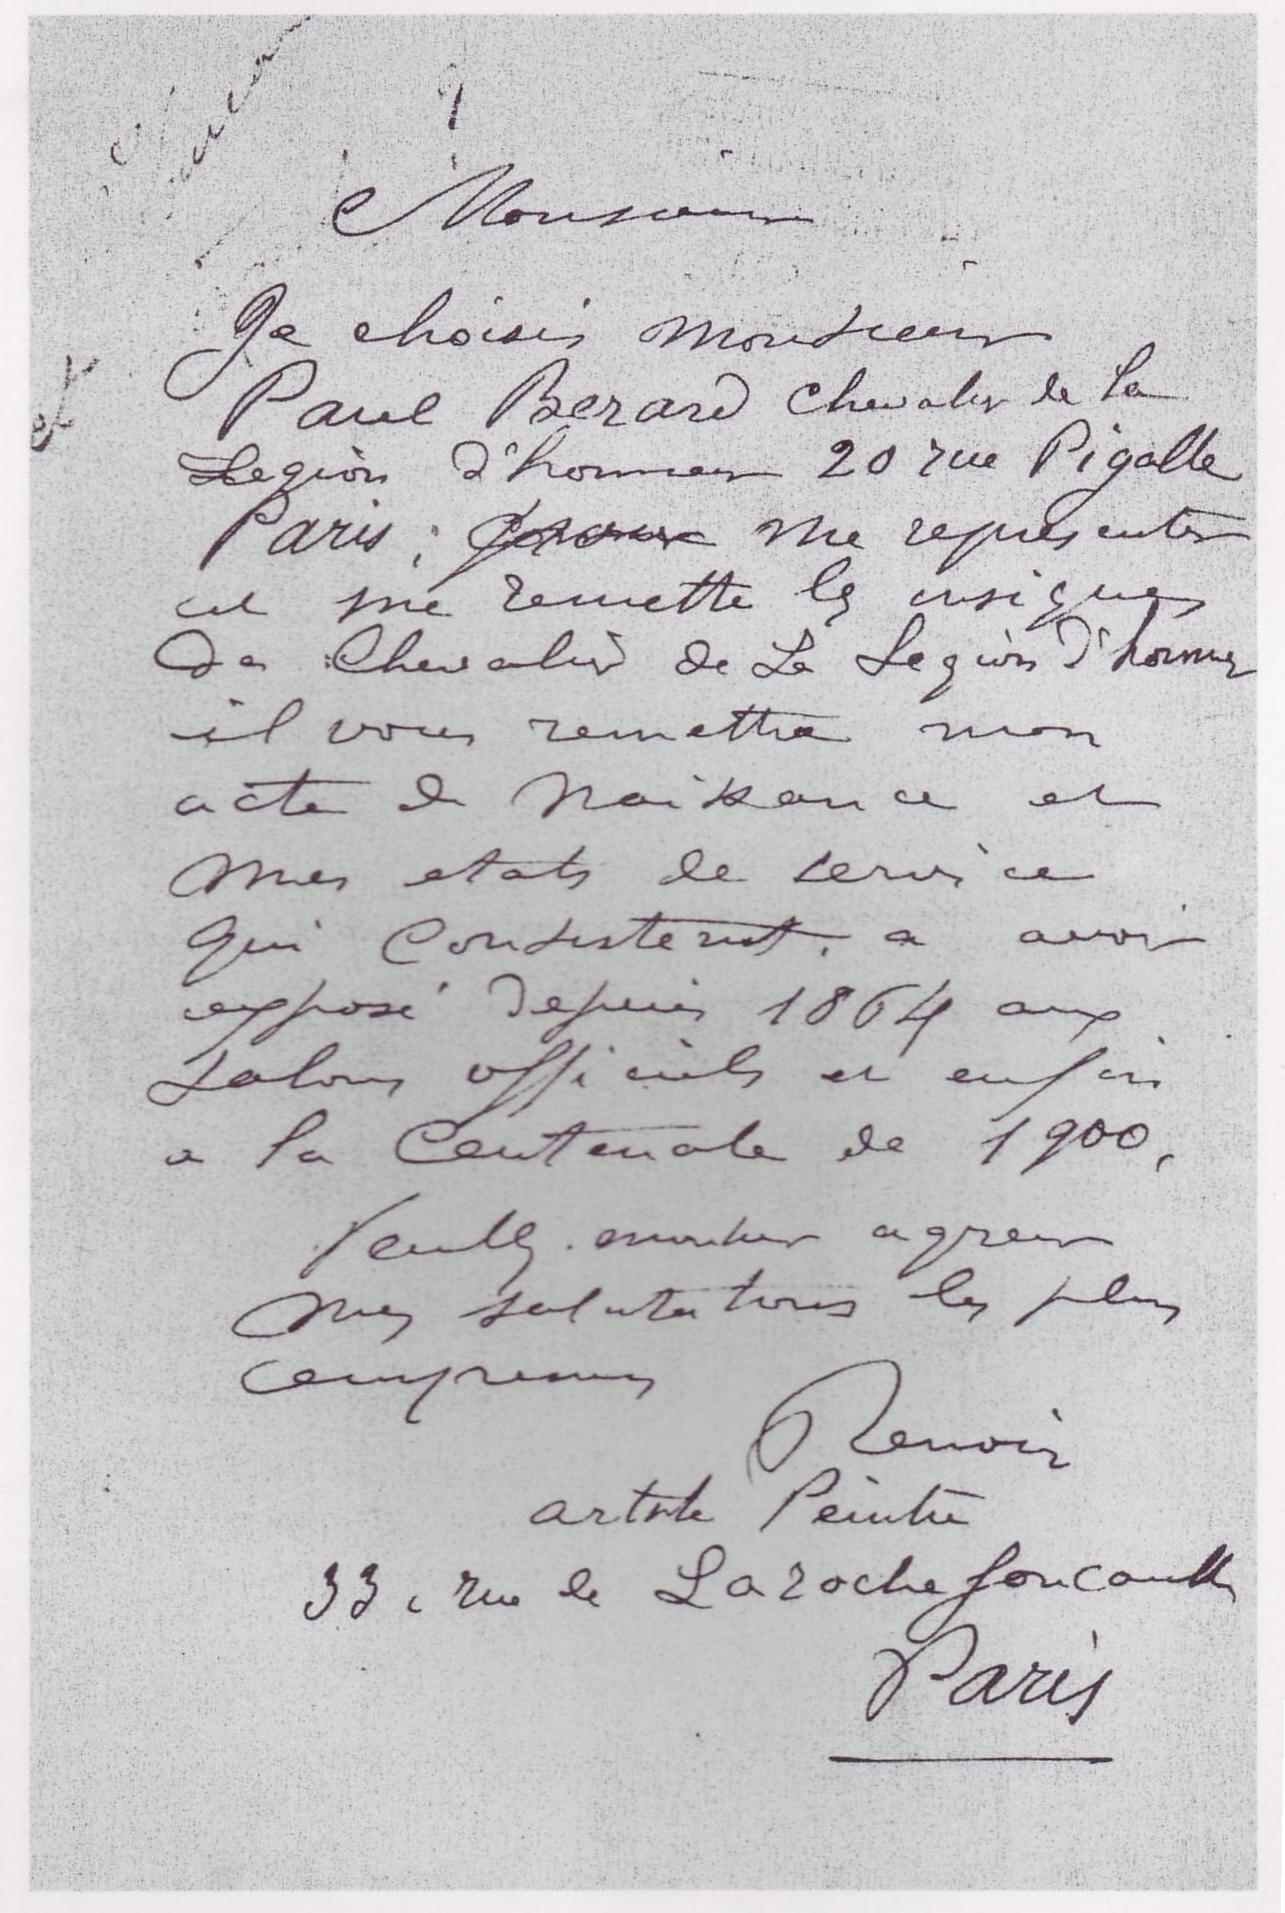 Monsieur
Je choisis monsieur
Paul Berard Chevalier de la
Legion d'honneur 20 rue Pigalle
Paris, pour me representer
et me remettre les insignes
de Chevalier de La Legion d'honneur
il vous remettra mon
acte de naissance et
mes etats de service
qui consistent, a avoir
exposé depuis 1864 aux
salons officiels et enfin
a la Centenale de 1900,
Veuillez monsieur agreer
mes salutations les plus
empressees
Renoir
artiste Peintre
33, rue de Larochefoucault
Paris
et